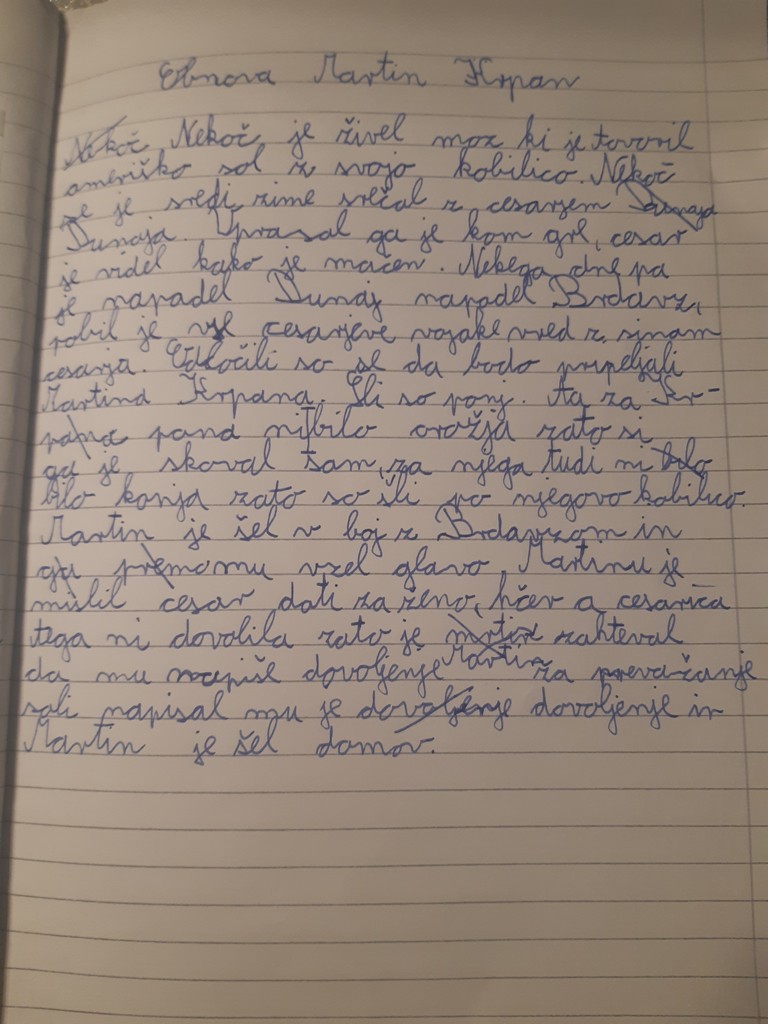 Obnova Martin Krpan
Nekoč Nekoč je živel moz ki je tovoril
ameriško sol z svojo kobilico. Nekoč
se je sredi zime srečal z cesarjem Dunaja
Dunaja. Uprasal ga je kom gre, cesar
je videl kako je mačen. Nekega dne pa
je napadel Dunaj napadel Brdavz,
pobil je vse cesarjeve vojake vred z sinam
cesarja. Odločili so se da bodo pripeljali
Martina Krpana. Šli so ponj. A za Kr-
pana pana ni bilo orožja zato si
ga je skoval sam, za njega tudi ni bilo
bilo konja zato so šli po njegovo kobilico.
Martin je šel v boj z Brdavzom in
ga premomu vzel glavo. Martinu je
mislil cesar dati za ženo, hčer a cesarica
tega ni dovolila zato je zahteval
da mu napiše dovoljenje Martin za prevažanje
soli napisal mu je dovoljenje dovoljenje in
Martin je šel domov.